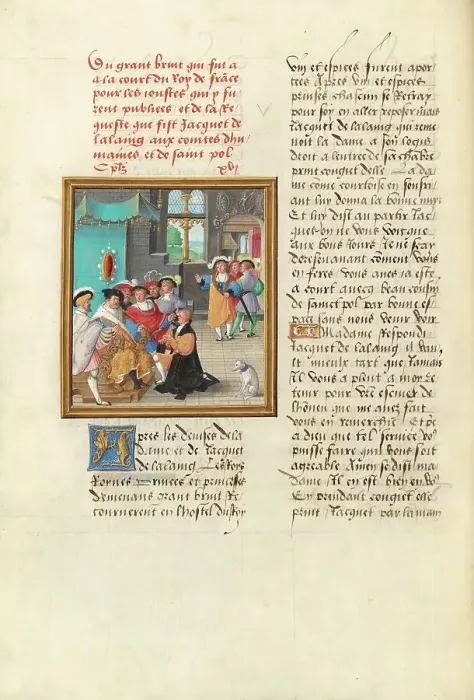 Du grant bruit qui fut a
a la court du Roy de frāce
pour les ioustes qui y fu
rent publiees et de la Re
queste que fist Jacquet de
lalaing aux comtes du
maines et de saint pol
xvi
Apres les deuises de la
Dame et de Jacquet
de lalaing Les Roys
Roynes Princes et princesses
demenans grant bruit Re
tournerent en lhostel du Roy
vin et espices furent apor
tees Apres vin et espices
prinses chascun se Retray
pour soy en aller reposer mais
Jacquet de lalaing qui reme
noit la dame a son logis
droit a lentree de sa chābre
print congiet delle La da
me cōme courtoise en soubzri
ant luy donna la bonne nuyt
Et luy dist au partir Jac
quet on ne vous voit que
aux bons iours Je ne scay
doresenauant cōment vous
en feres vous aues ia este
a court auecq beau cousin
de sainct pol par bonne es
pace sans nous venir veoir
Madame Respondi
Jacquet de lalaing il vault
mieulx tart que Jamais
Il vous a pleut a moy te
tenir pour vr̄e escuier de
lhōneur que me aues fait
vous en remerchie Et pe
a dieu que tel seruice vo
puisse faire qui vous soit
agreable Amen se dist ma
dame Il en est bien en vo
En prendant congiet elle
print Jacquet par la main